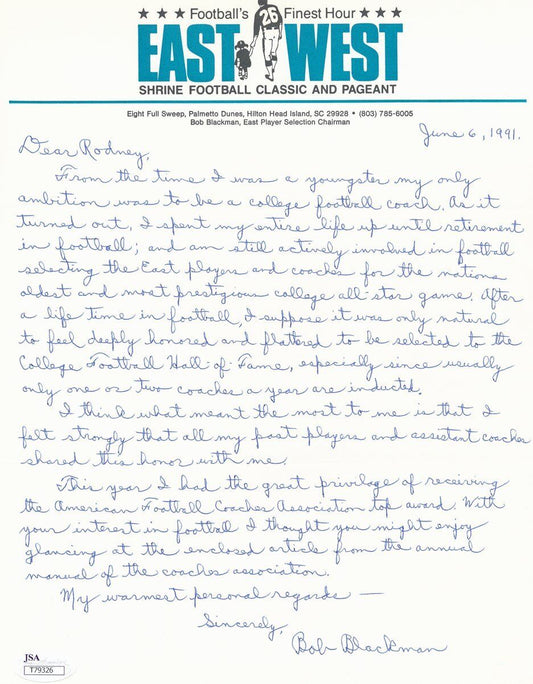 ★ ★ ★ Football's Finest Hour ★ ★ ★
26
EAST WEST
SHRINE FOOTBALL CLASSIC AND PAGEANT
Eight Full Sweep, Palmetto Dunes, Hilton Head Island, SC 29928 • (803) 785-6005
Bob Blackman, East Player Selection Chairman
June 6, 1991.
Dear Rodney,
From the time I was a youngster my only
ambition was to be a college football coach. As it
turned out, I spent my entire life up until retirement
in football; and am still actively involved in football
selecting the East players and coaches for the nations
oldest and most prestigious college all-star game. After
a life time in football, I suppose it was only natural
to feel deeply honored and flattered to be selected to the
College Football Hall-of-Fame, especially since usually
only one or two coaches a year are inducted.
I think what meant the most to me is that I
felt strongly that all my past players and assistant coaches
shared this honor with me.
This year I had the great privilage of receiving
the American Football Coaches Association top award. With
your interest in football I thought you might enjoy
glancing at the enclosed article from the annual
manual of the coaches association.
My warmest personal regards —
Sincerely,
Bob Blackman
JSA
T79326